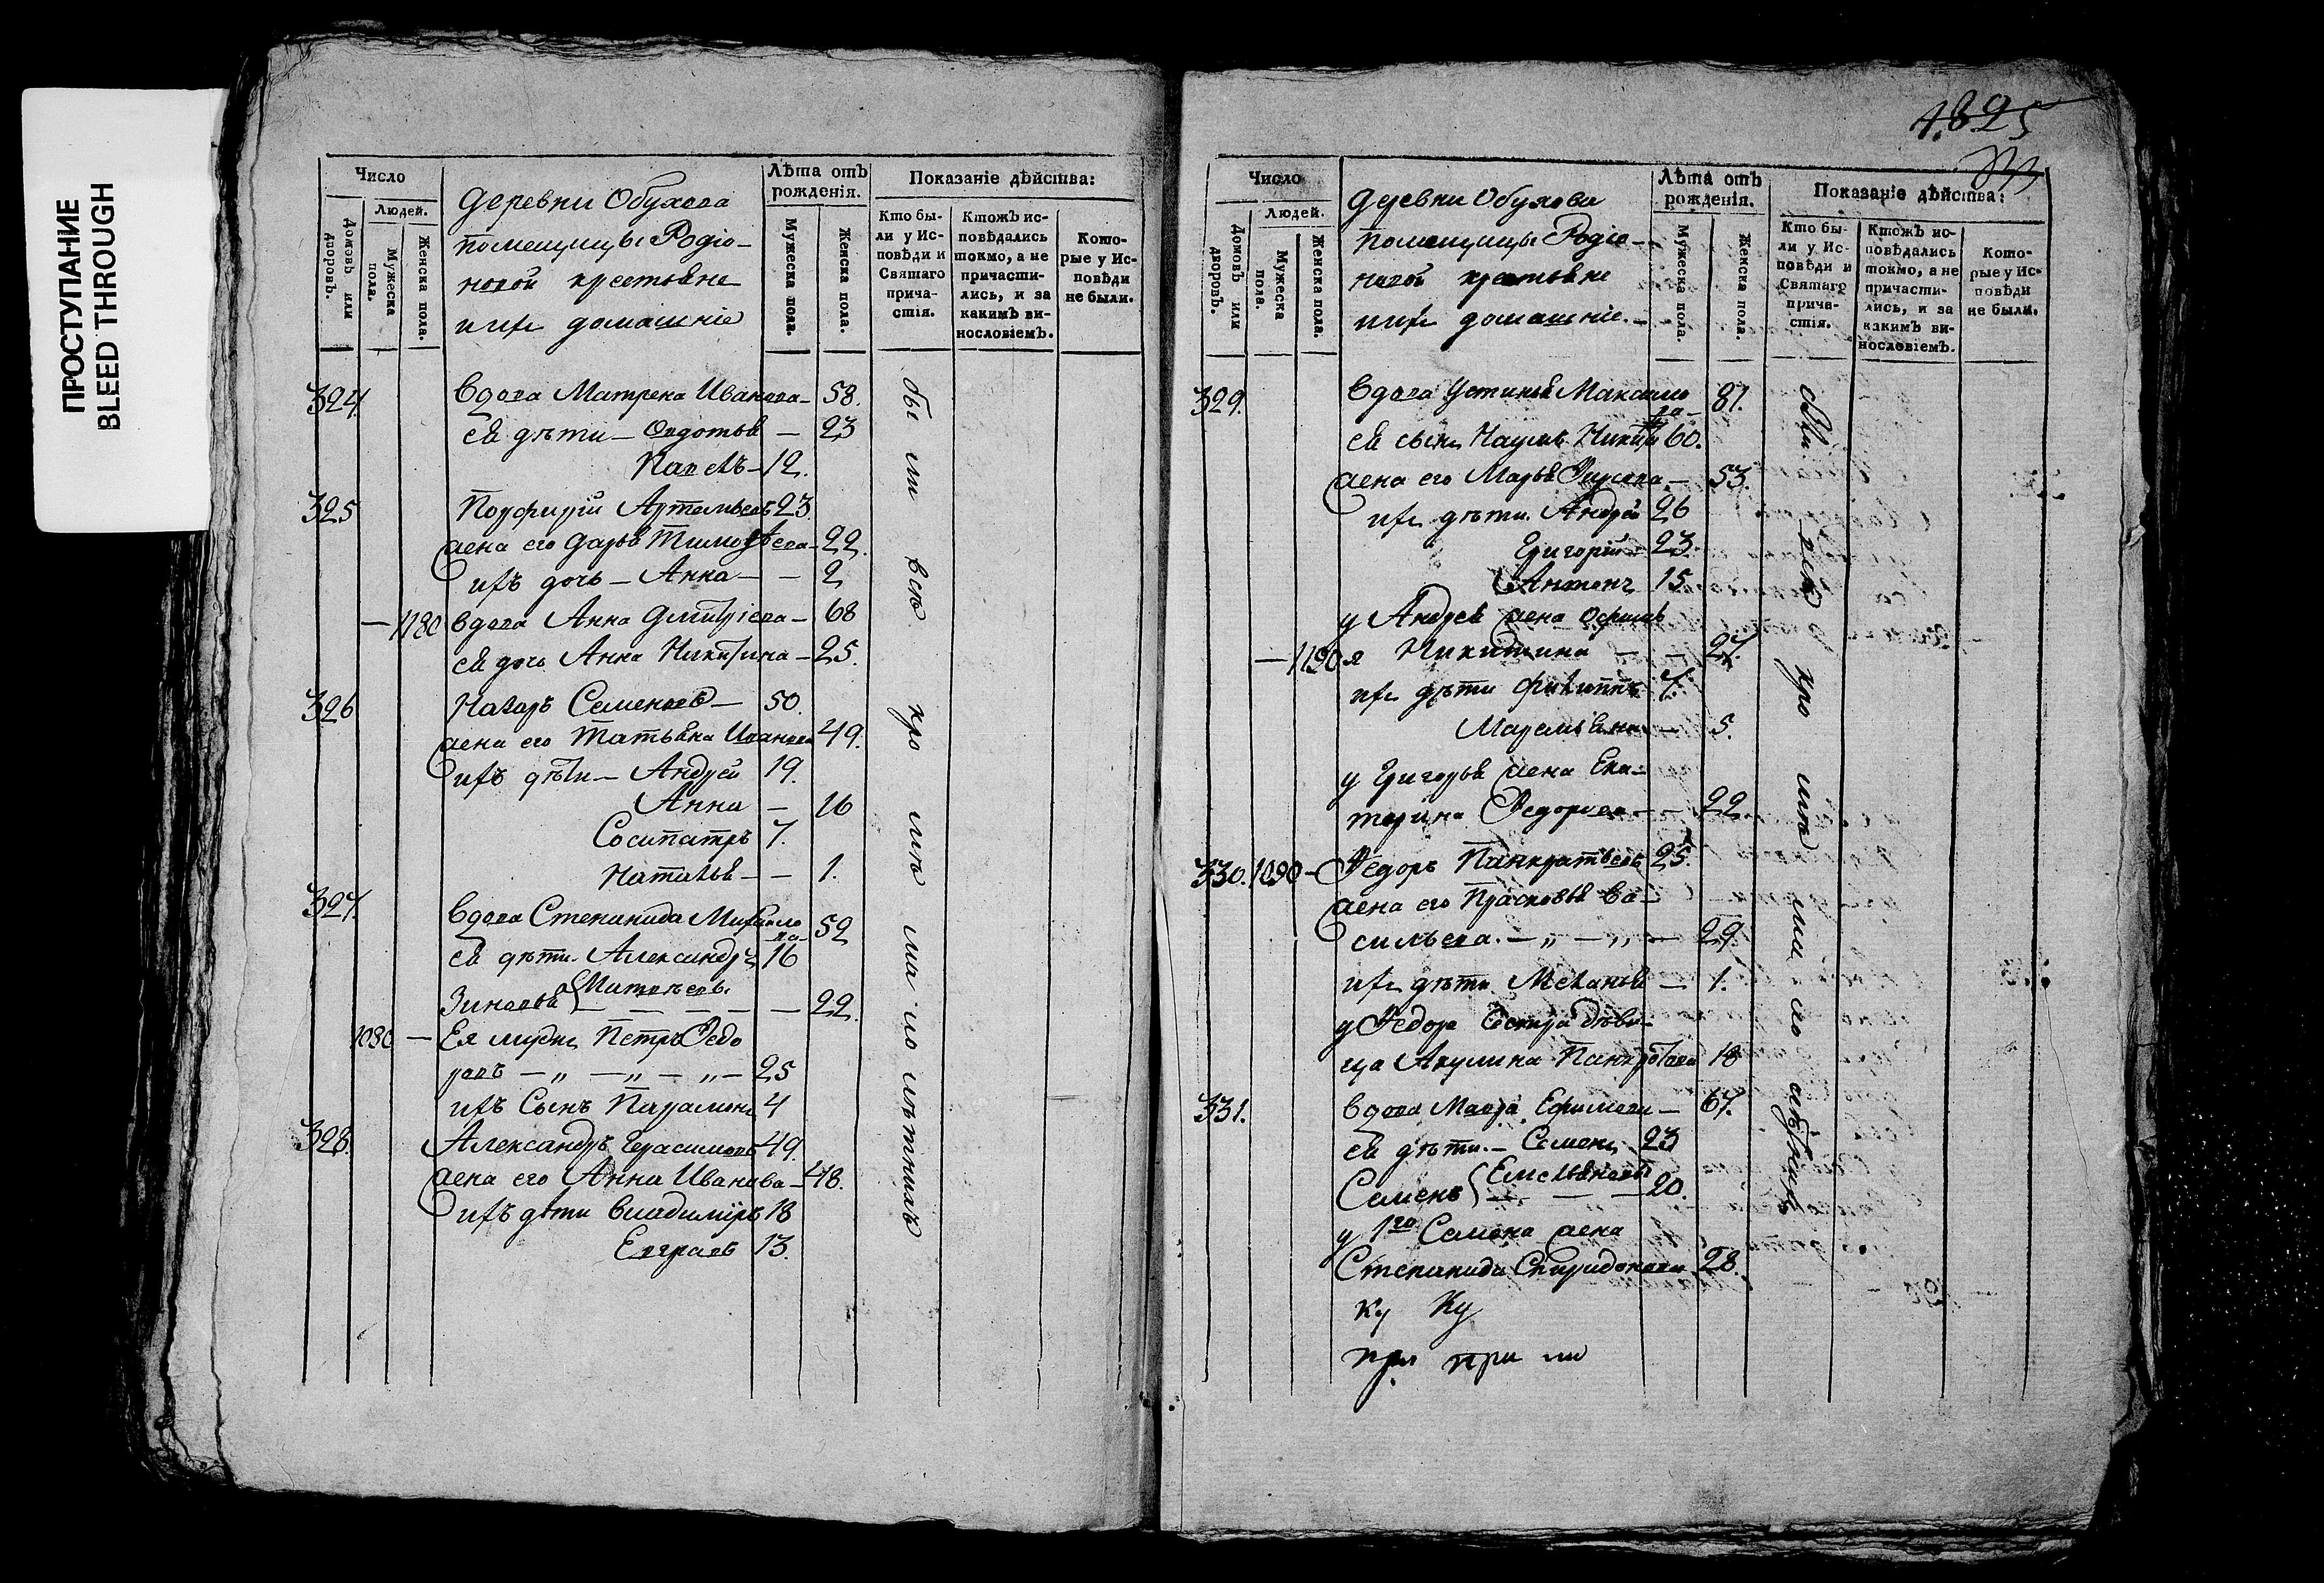 ПРОСТУПАНИЕ
BLEED THROUGH
Число
Людей.
Домовъ или дворовъ.
Мужеска пола.
Женска пола.
деревни Обухова
помещицы Родіо-
новой крестьяне
и ихъ домашніе
Лѣта отъ рожденія.
Мужеска пола.
Женска пола.
Показаніе дѣйства:
Кто бы-
ли у Ис-
повѣди и
Святаго
прича-
стія.
Ктожъ ис-
повѣдались
токмо, а не
причасти-
лись, и за
какимъ ви-
нословіемъ.
Кото-
рые у Ис-
повѣди
не были.
324. вдова Матрена Иванова - 58.
ея дѣти - Овдотья - 23
Павелъ - 12.
325 Порфирій Артемьевъ 23.
жена его Дарья Тимофѣева - 22.
ихъ дочь - Анна - - 2
- 1180 вдова Анна Дмитріева - 68
ея дочь Анна Никитина - 25.
326 Назаръ Семеновъ - 50.
жена его Татьяна Иванова 49.
ихъ дѣти - Андрей 19.
Анна - 16
Сосипатръ 7.
Наталья - - 1.
327. вдова Степанида Михайло
ва - 52
ея дѣти - Александръ 16
Зиновья Матвѣевы - 22.
1080 - Ея мужъ Петръ Федо
ровъ - „ - „ - „ - 25
ихъ Сынъ Парамонъ 4
328. Александръ Герасимовъ 49.
жена его Анна Иванова - 48.
ихъ дѣти Владиміръ 18
Евграфъ 13.
бы ли всѣ кро мѣ ма ло лѣтнихъ
1825
Число
Людей.
Домовъ или дворовъ.
Мужеска пола.
Женска пола.
деревни Обухова
помещицы Родіо-
новой крестьяне
ихъ домашніе. -
Лѣта отъ рожденія.
Мужеска пола.
Женска пола.
Показаніе дѣйства:
Кто бы-
ли у Ис-
повѣди и
Святаго
прича-
стія.
Ктожъ ис-
повѣдались
токмо, а не
причасти-
лись, и за
какимъ ви-
нословіемъ.
Кото-
рые у Ис-
повѣди
не были.
329. вдова Устинья Максимо
ва - 81.
ея сынъ Наумъ Никит 60.
жена его Марья - 53.
ихъ дѣти. Андрей 26
Григорій - 23.
Антонъ 15.
у Андрея жена Офимь
- 1190 я Никитина - - 27.
ихъ дѣти Филиппъ 7.
Маремьяна - 5.
у Григорья жена Ека-
терина Федорова - - 22.
330. 1090 - Федоръ Панкратьевъ 25.
жена его Прасковья Ва-
сильева. - „ - „ - 29.
ихъ дѣти Меланья - 1.
у Федора Сестра дѣви-
ца Акулина Панкратова 18
331. вдова Мавра Ефимова - 67.
ея дѣти. - Семенъ 23
Семенъ Емельяновы - 20.
у 1го Семена жена
Степанида Спиридонова 28.
Ку Ку
при при ли
всѣ кро мѣ ма ло лѣтнихъ